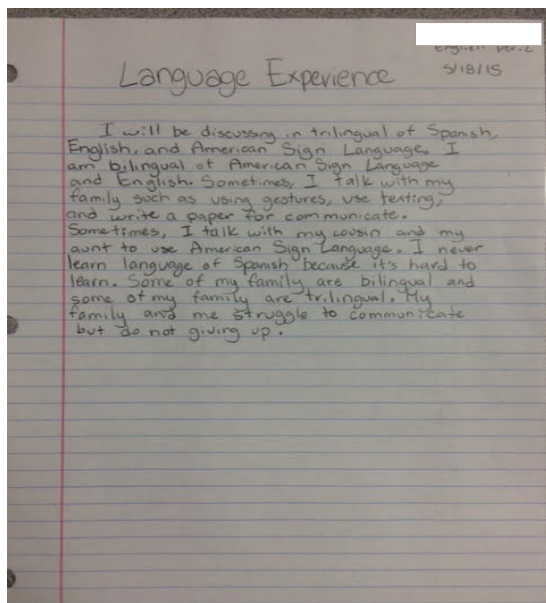 English Per. 2
5/18/15
Language Experience
I will be discussing in trilingual of Spanish,
English, and American Sign Language. I
am bilingual of American Sign Language
and English. Sometimes, I talk with my
family such as using gestures, use texting,
and write a paper for communicate.
Sometimes, I talk with my cousin and my
aunt to use American Sign Language. I never
learn language of Spanish because it's hard to
learn. Some of my family are bilingual and
some of my family are trilingual. My
family and me struggle to communicate
but do not giving up.